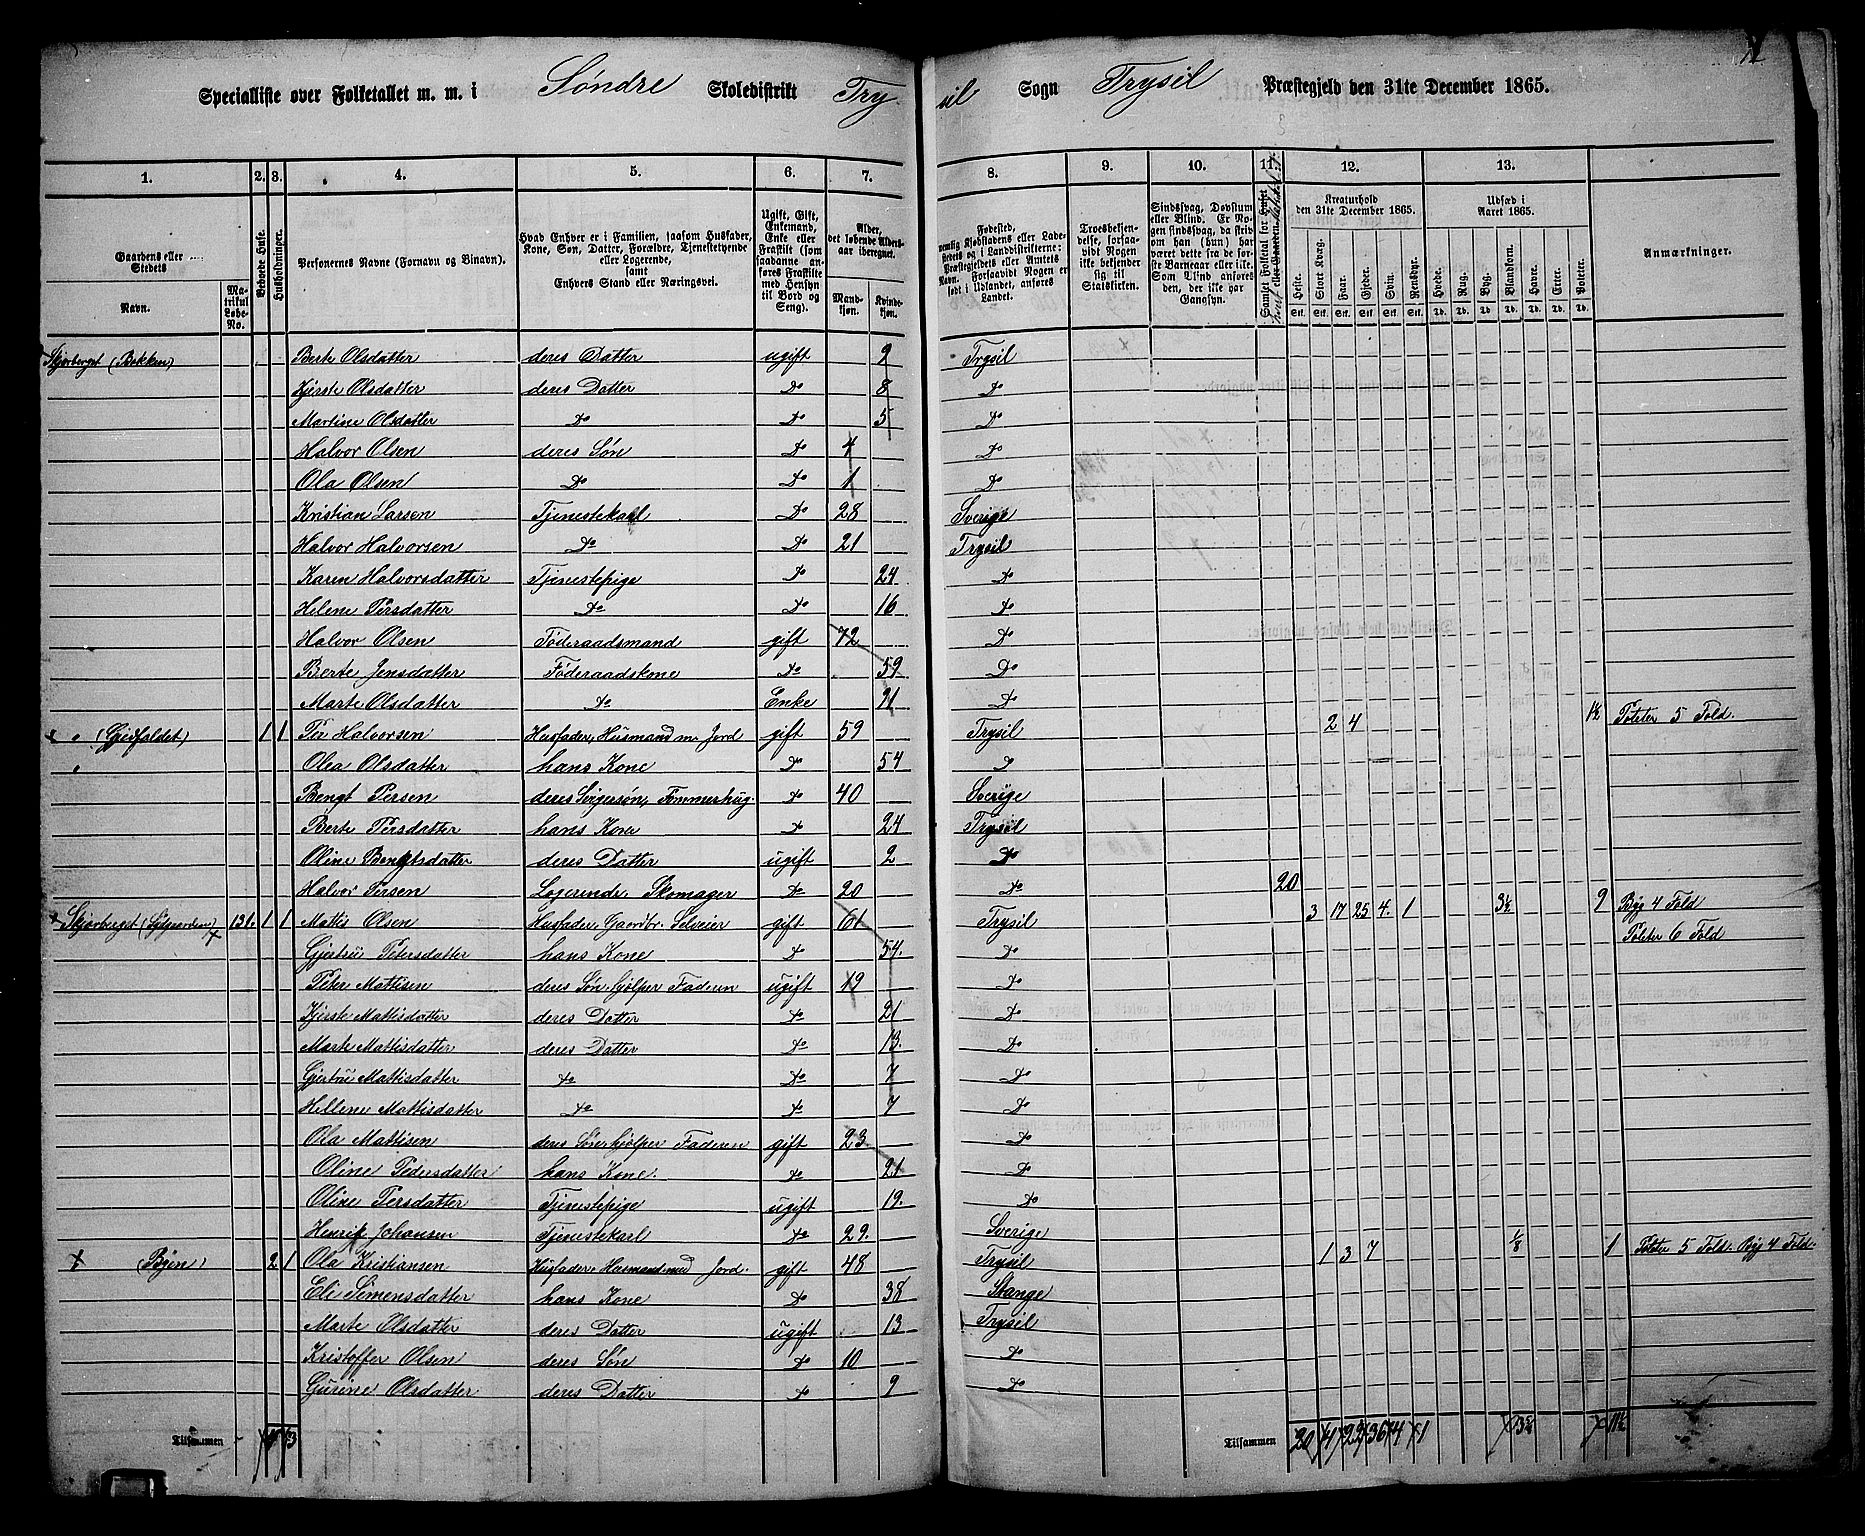 Specialliste over Folketallet m. m. i Søndre Skoledistrikt Trysil Sogn Trysil Præstegjeld den 31te December 1865.
1. 2. 3. 4. 5. 6. 7. 8. 9. 10. 11. 12. 13.
Gaardens eller Stedets Navn. Matrikul Løbe-No. Beboede Huse. Husholdninger. Personernes Navne (Fornavn og Binavn). Hvad Enhver er i Familien, saasom Husfader, Kone, Søn, Datter, Forældre, Tjenestetyende eller Logerende, samt Enhvers Stand eller Næringsvei. Ugift, Gift, Enkemand, Enke eller Fraskilt (saadanne anføres Fraskilte med Hensyn til Bord og Seng). Alder, det løbende Aldersaar iberegnet. Mandkjøn. Kvindekjøn. Fødested, Troesbekjendelse, forsaavidt Nogen ikke bekjender sig til Statskirken. Sindssvag, Døvstum eller Blind. Kreaturhold den 31te December 1865. Heste. Stort Kvæg. Faar. Gjeder. Svin. Rensdyr. Udsæd i Aaret 1865. Hvede. Rug. Byg. Blandkorn. Havre. Erter. Poteter. Anmærkninger.
Skjærberget (Bakken) Berte Olsdatter deres Datter ugift 9 Trysil
Kjerste Olsdatter deres Datter Do 8 Do
Martine Olsdatter Do Do 5 Do
Halvor Olsen deres Søn Do 4 Do
Ola Olsen Do Do 1 Do
Kristian Larsen Tjenestekarl Do 28 Sverige
Halvor Halvorsen Do Do 21 Trysil
Karen Halvorsdatter Tjenestepige Do 24 Do
Helene Persdatter Do Do 16 Do
Halvor Olsen Føderaadsmand gift 72 Do
Berte Jensdatter Føderaadskone Do 59 Do
Marte Olsdatter Do Enke 71 Do
1 1 Per Halvorsen Husfader, Husmand m Jord gift 59 Trysil 2 4 1½ Poteter 5 Fold.
Olea Olsdatter hans Kone Do 54 Do
Bengt Persen deres Svigersøn, Tømmerhug. Do 40 Sverige
Berte Persdatter hans Kone Do 24 Trysil
Oline Bengtsdatter deres Datter ugift 2 Do
Halvor Persen Logerende, Skomager Do 20 Do 20
Skjærberget 131. 1 1 Mattis Olsen Husfader, Gaardbr. Selveier gift 61 Trysil 3 17 25 4. 1 3½ 9 Byg 4 Fold
Gjertru Petersdatter hans Kone Do 54. Do Poteter 6 Fold
Peter Mattisen deres Søn. hjelper Faderen ugift 19 Do
Kjerste Mattisdatter deres Datter Do 21 Do
Marte Mattisdatter deres Datter Do 13. Do
Gjertru Mattisdatter Do Do 7 Do
Hellene Mattisdatter Do Do 7 Do
Ola Mattisen deres Søn hjelper Faderen gift 23 Do
Oline Pedersdatter hans Kone. Do 21 Do
Oline Persdatter Tjenestepige ugift 19. Do
Henrik Johansen Tjenestekarl Do 29. Sverige
(Bøen) 2 1 Ola Kristiansen Husfader, Husmand med Jord. gift 48 Trysil 1 3 7 1/8 1 Poteter 5 Fold. Byg 4 Fold.
Eli Simensdatter hans Kone Do 38 Stange
Marte Olsdatter deres Datter ugift 13 Trysil
Kristoffer Olsen deres Søn Do 10 Do
Gurine Olsdatter deres Datter Do 9 Do
Tilsammen 4 3 Tilsammen 20 4 23 36 4 1 11½